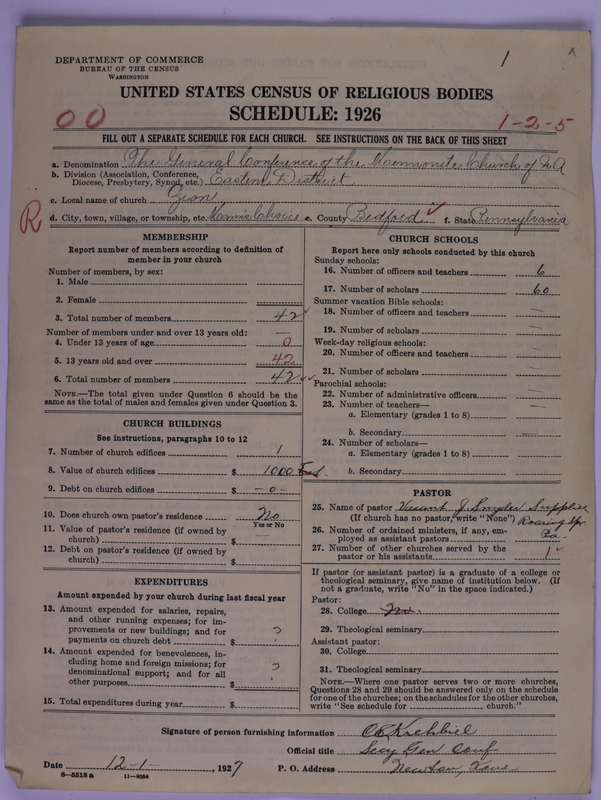 1
DEPARTMENT OF COMMERCE
BUREAU OF THE CENSUS
WASHINGTON
UNITED STATES CENSUS OF RELIGIOUS BODIES
SCHEDULE: 1926
00
1-2-5
FILL OUT A SEPARATE SCHEDULE FOR EACH CHURCH. SEE INSTRUCTIONS ON THE BACK OF THIS SHEET
a. Denomination The General Conference of the Mennonite Church of N A
b. Division (Association, Conference, Diocese, Presbytery, Synod, etc.) Eastern District
c. Local name of church Zion
R
d. City, town, village, or township, etc. Manns Choice e. County Bedford f. State Pennsylvania
MEMBERSHIP
Report number of members according to definition of
member in your church
Number of members, by sex:
1. Male
2. Female
3. Total number of members 42
Number of members under and over 13 years old:
4. Under 13 years of age 0
5. 13 years old and over 42
6. Total number of members 42
NOTE.—The total given under Question 6 should be
same as the total of males and females given under Question 3.
CHURCH BUILDINGS
See instructions, paragraphs 10 to 12
7. Number of church edifices 1
8. Value of church edifices $ 1000 Est.
9. Debt on church edifices $ — 0 —
10. Does church own pastor's residence No
Yes or No
11. Value of pastor's residence (if owned by
church) $
12. Debt on pastor's residence (if owned by
church) $
EXPENDITURES
Amount expended by your church during last fiscal year
13. Amount expended for salaries, repairs,
and other running expenses; for im-
provements or new buildings; and for
payments on church debt $ ?
14. Amount expended for benevolences, in-
cluding home and foreign missions; for
denominational support; and for all
other purposes $ ?
15. Total expenditures during year $
CHURCH SCHOOLS
Report here only schools conducted by this church
Sunday schools:
16. Number of officers and teachers 6
17. Number of scholars 60
Summer vacation Bible schools:
18. Number of officers and teachers —
19. Number of scholars —
Week-day religious schools:
20. Number of officers and teachers —
21. Number of scholars —
Parochial schools:
22. Number of administrative officers —
23. Number of teachers—
a. Elementary (grades 1 to 8)
b. Secondary —
24. Number of scholars—
a. Elementary (grades 1 to 8)
b. Secondary
PASTOR
25. Name of pastor J. Snyder Supplies
(If church has no pastor, write "None") Roaring Spr.
26. Number of ordained ministers, if any, em-
ployed as assistant pastors Pa.
27. Number of other churches served by the
pastor or his assistants 1
If pastor (or assistant pastor) is a graduate of a college or
theological seminary, give name of institution below. (If
not a graduate, write "No" in the space indicated.)
Pastor:
28. College No.
29. Theological seminary
Assistant pastor:
30. College
31. Theological seminary
NOTE.—Where one pastor serves two or more churches,
Questions 28 and 29 should be answered only on the schedule
for one of the churches; on the schedules for the other churches,
write "See schedule for church."
Signature of person furnishing information C E Krehbiel
Official title Secy Gen Conf
Date 12-1-, 1927 P. O. Address Newton, Kans
8-5518a 11-9084